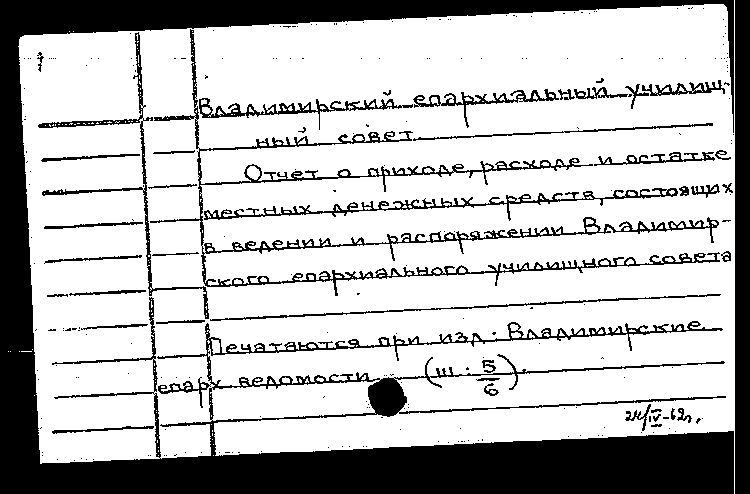 Владимирский епархиальный училищ-
ный совет.
Отчет о приходе, расходе и остатке
местных денежных средств, состоящих
в ведении и распоряжении Владимир-
ского епархиального училищного совета
Печатаются при изд.: Владимирские
епарх. ведомости (ш: 5/6).
24/IV-62г.